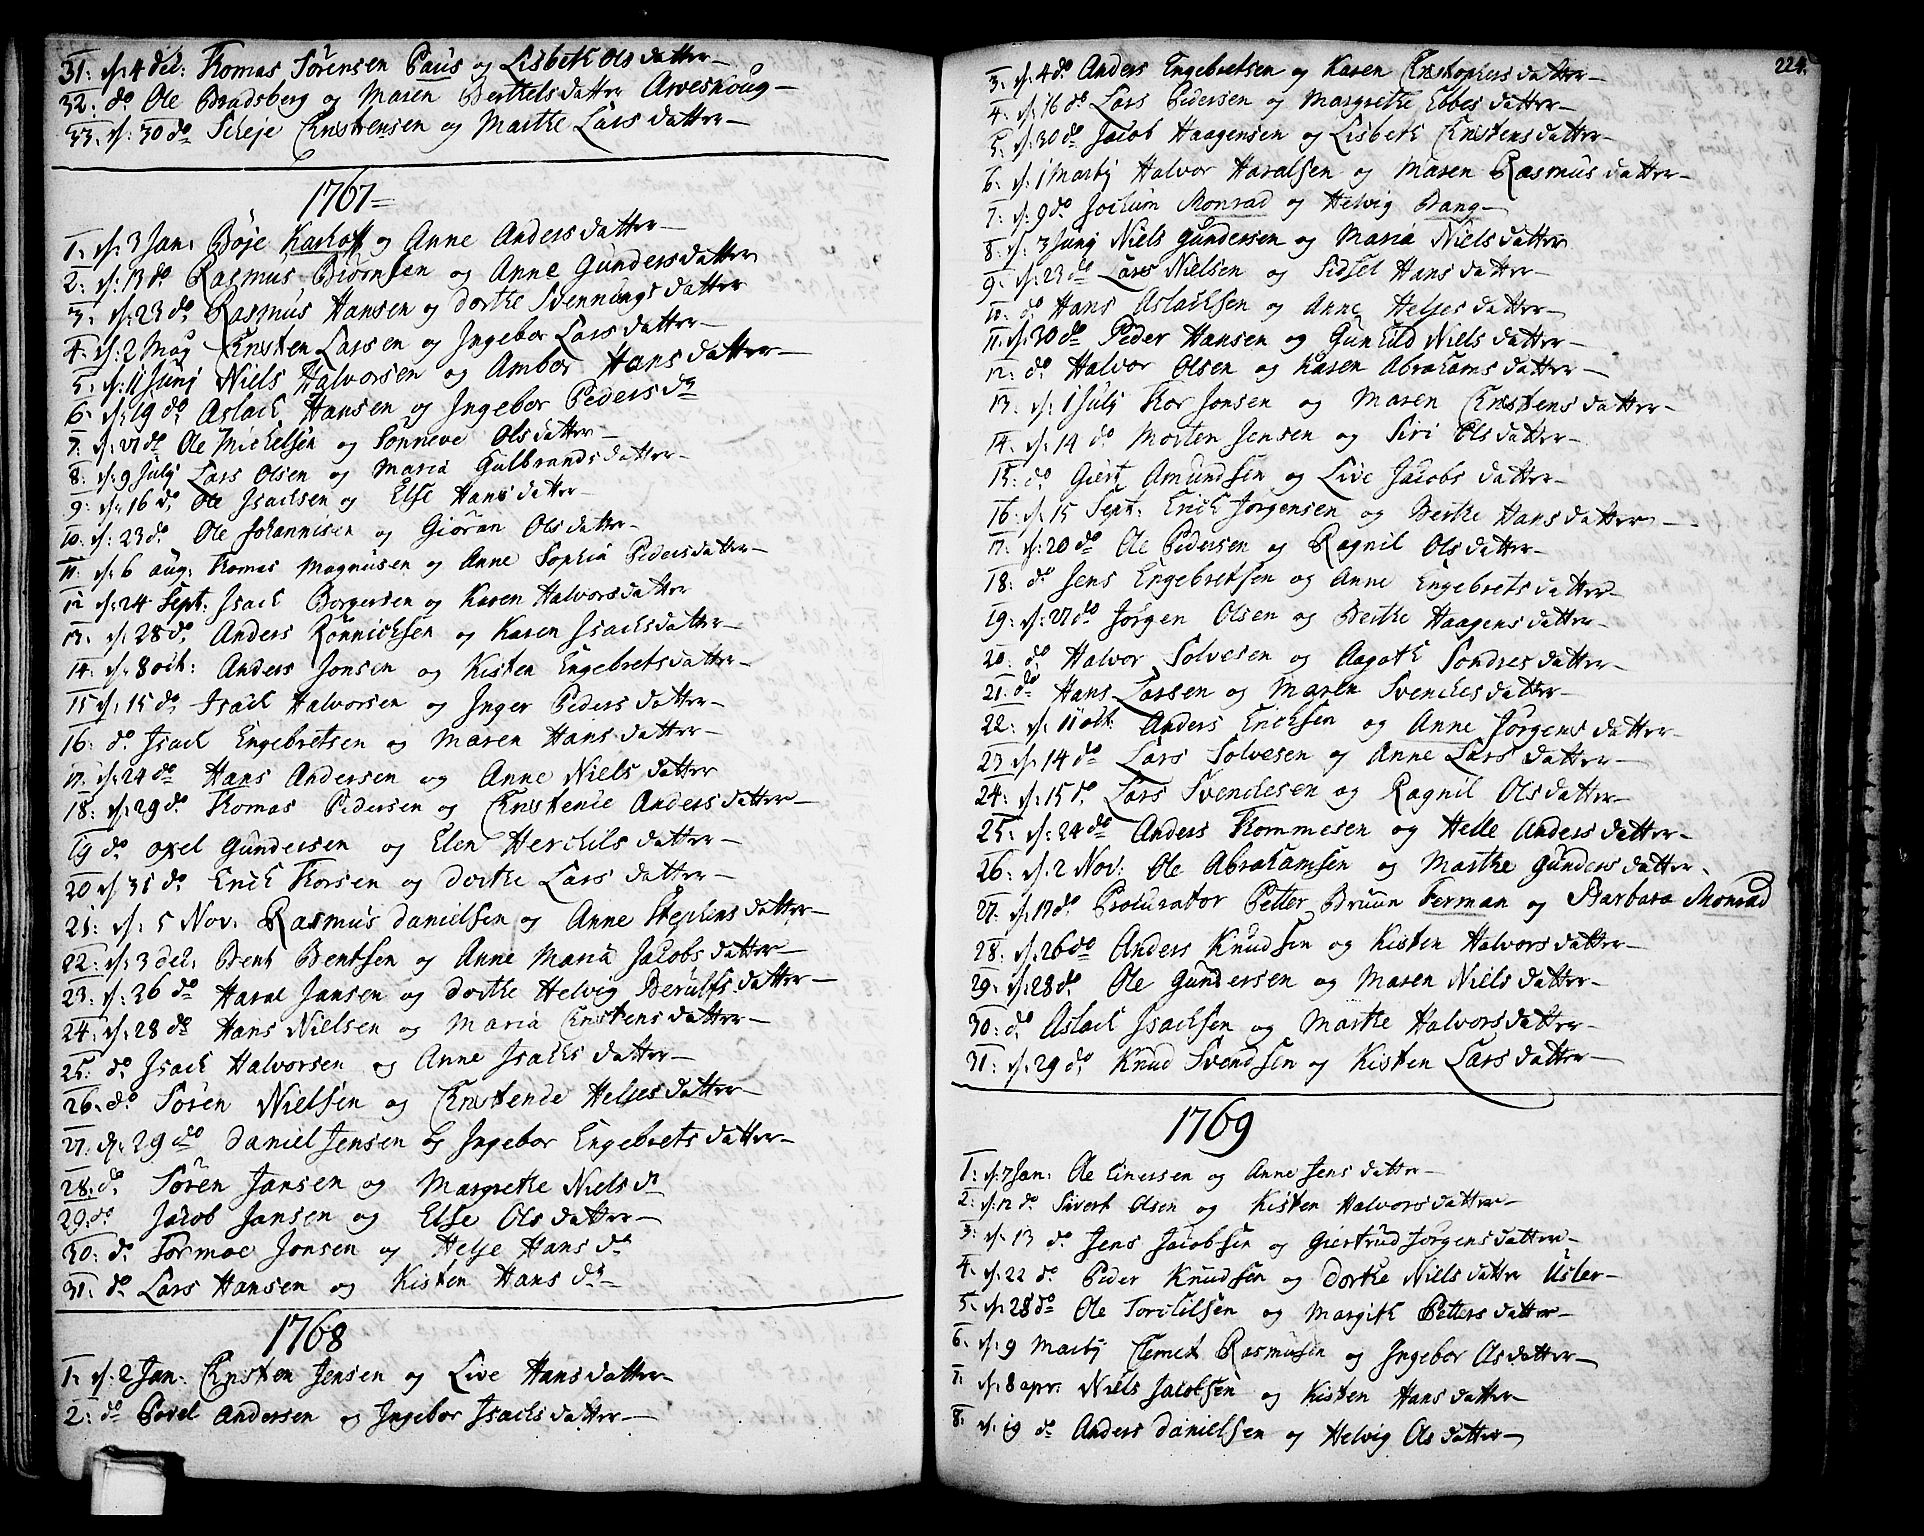 31: d: 4 dec: Thomas Sörensen Paus og Lisbeth Olsdatter
32: do Ole Bradsberg og Maren Berthelsdatter Arveskoug
33: d: 30 do Christensen og Marthe Larsdatter
1767
1: d: 3 Jan: Böje og Anne Andersdatter
2: d: 13 do Rasmus Biörnsen og Anne Gundersdatter
3: d: 23 do Rasmus Hansen og Dorthe Svenningsdatter
4: d: 2 Maj Christen Larsen og Ingebor Larsdatter
5: d: 11 Junj Niels Halvorsen og Ambor Hansdatter
6: d: 19 do Aslach Hansen og Ingebor Pedersdr
7: d: 21 do Ole Michelsen og Sönneve Olsdatter
8: d: 9 Julj Lars Olsen og Maria Gulbrandsdatter
9: d: 16 do Ole Isachsen og Else Hansdatter
10: d: 23 do Ole Johannisen og Giöran Olsdatter
11: d: 6 aug: Thomas Magnusen og Anne Sophia Pedersdatter
12 d: 24 Sept: Isach Borgersen og Karen Halvorsdatter
13: d: 28 do Anders Rönnichsen og Karen Isachsdatter
14: d: 8 oct: Anders Jonsen og Kisten Engebretsdatter
15 d: 15 do Isach Halvorsen og Inger Pedersdatter
16: do Isach Engebretsen og Maren Hansdatter
17: d: 24 do Hans Andersen og Anne Nielsdatter
18: d: 29 do Thomas Pedersen og Christence Andersdatter
19 do Axel Gundersen og Elen Herchilsdatter
20 d: 31 do Erich Thorsen og Dorthe Larsdatter
21: d: 5 Nov: Rasmus Danielsen og Anne Stephensdatter
22: d: 3 dec: Bent Bentsen og Anne Maria Jacobsdatter
23: d: 26 do Haral Jansen og Dorthe Helvig Berulfsdatter
24: d: 28 do Hans Nielsen og Maria Christensdatter
25: do Isach Halvorsen og Anne Isachsdatter
26: do Sören Nielsen og Christence Heljesdatter
27: d: 29 do Daniel Jensen og Ingebor Engebretsdatter
28: do Sören Jansen og Margrethe Nielsdr
29: do Jacob Jansen og Else Olsdatter
30: do Tormoe Jonsen og Helje Hansdr
31: do Lars Hansen og Kisten Hansdr
1768
1: d: 2 Jan: Christen Jensen og Live Hansdatter
2: do Povel Andersen og Ingebor Isachsdatter
224.
3: d: 4 do Anders Engebretsen og Karen Christophersdatter
4: d: 16 do Lars Pedersen og Margrethe Ebbesdatter
5: d: 30 do Jacob Haagensen og Lisbeth Christensdatter
6: d: 1 Martj Halvor Haralsen og Maren Rasmusdatter
7: d: 9 do Jochum Monrad og Helvig Bang
8: d: 3 Junj Niels Gundersen og Maria Nielsdatter
9: d: 23 do Lars Nielsen og Sidsel Hansdatter
10: do Hans Aslachsen og Anne Heljesdatter
11: d: 30 do Peder Hansen og Gunhild Nielsdatter
12: do Halvor Olsen og Karen Abrahamsdatter
13: d: 1 Julj Thor Jonsen og Maren Christensdatter
14: d: 14 do Morten Jensen og Siri Olsdatter
15: do Giert Amundsen og Live Jacobsdatter
16: d: 15 Sept: Erich Jörgensen og Berthe Hansdatter
17: d: 20 do Ole Pedersen og Ragnil Olsdatter
18: do Jens Engebretsen og Anne Engebretsdatter
19: d: 27 do Jörgen Olsen og Berthe Haagensdatter
20: do Halvor Solvesen og Aagath Sondresdatter
21: do Hans Larsen og Maren Svenchesdatter
22: d: 11 oct: Anders Erichsen og Anne Jörgensdatter
23 d: 14 do Lars Solvesen og Anne Larsdatter
24: d: 15 do Lars Svenchesen og Ragnil Olsdatter
25: d: 24 do Anders Thommesen og Helle Andersdatter
26: d: 2 Nov: Ole Abrahamsen og Marthe Gundersdatter
27: d: 17 do Procurator Petter Bruun Ferman og Barbara Monrad
28: d: 26 do Anders Knudsen og Kisten Halvorsdatter
29: d: 28 do Ole Gundersen og Maren Nielsdatter
30: do Aslach Isachsen og Marthe Halvorsdatter
31: d: 29 do Knud Svendsen og Kisten Larsdatter
1769
1: d: 7 Jan: Ole Einersen og Anne Jensdatter
2: d: 12 do Sivert Olsen og Kisten Halvorsdatter
3: d: 13 do Jens Jacobsen og Giertrud Jörgensdatter
4: d: 22 do Peder Knudsen og Dorthe Nielsdatter Usler
5: d: 28 do Ole Torchilsen og Margith Pettersdatter
6: d: 9 Martj Clemet Rasmusen og Ingebor Olsdatter
7: d: 8 apr: Niels Jacobsen og Kisten Hansdatter
8: d: 19 do Anders Danielsen og Helvig Olsdatter